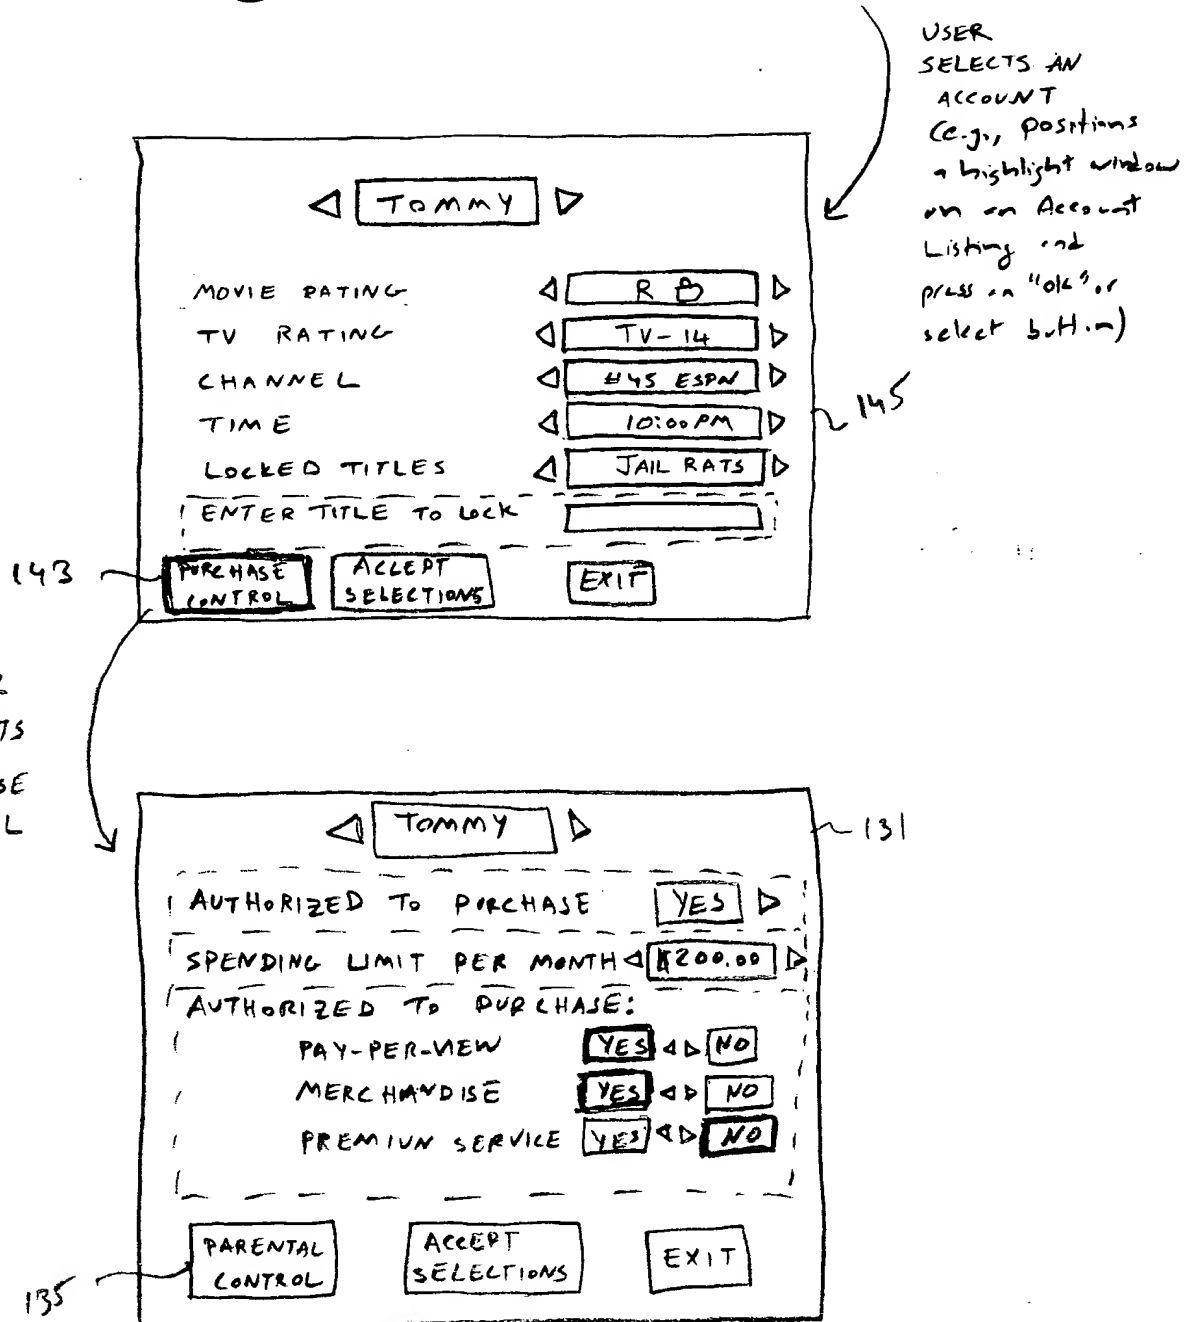 USER
SELECTS AN
ACCOUNT
(e.g., positions
a highlight window
on an Account
Listing and
press an "ok" or
select button)
TOMMY
MOVIE RATING R
TV RATING TV-14
CHANNEL #45 ESPN
TIME 10:00 PM
LOCKED TITLES JAIL RATS
ENTER TITLE TO LOCK
145
143
PURCHASE
CONTROL
ACCEPT
SELECTIONS
EXIT
TS
SE
L
TOMMY
131
AUTHORIZED TO PURCHASE YES
SPENDING LIMIT PER MONTH $200.00
AUTHORIZED TO PURCHASE:
PAY-PER-VIEW YES NO
MERCHANDISE YES NO
PREMIUN SERVICE YES NO
PARENTAL
CONTROL
ACCEPT
SELECTIONS
EXIT
135